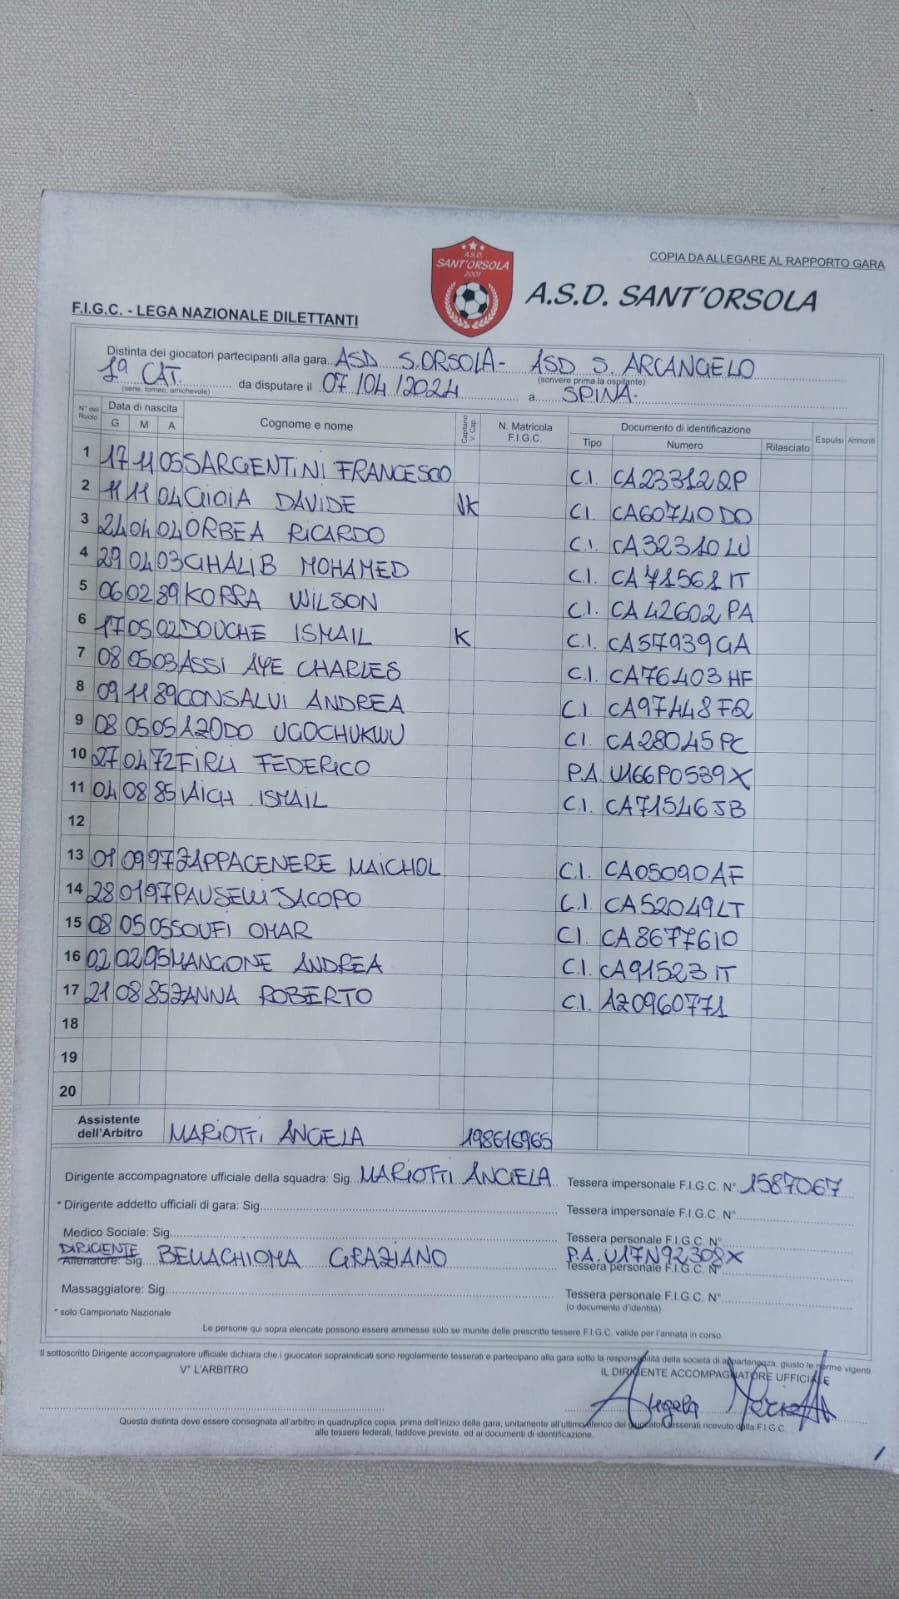 COPIA DA ALLEGARE AL RAPPORTO GARA
A.S.D.
SANT'ORSOLA
2001
A.S.D. SANT'ORSOLA
F.I.G.C. - LEGA NAZIONALE DILETTANTI
Distinta dei giocatori partecipanti alla gara ASD S.ORSOLA- ASD S. ARCANGELO
1ª CAT. da disputare il 07/04/2024 (scrivere prima la ospitante) a SPINA.
(serie, torneo, amichevole)
N° del Ruolo Data di nascita G M A Cognome e nome Capitano V. Cap. N. Matricola F.I.G.C. Documento di identificazione Tipo Numero Rilasciato Espulsi Ammoniti
1 17 11 05 SARGENTINI FRANCESCO C.I. CA23312QP
2 11 11 04 GIOIA DAVIDE VK CI CA60740DO
3 24 04 04 ORBEA RICARDO C.I. CA32310LU
4 29 04 03 GHALIB MOHAMED C.I. CA71561IT
5 06 02 89 KORRA WILSON C.I. CA42602PA
6 17 05 02 DOUCHE ISMAIL K C.I. CA57939GA
7 08 05 03 ASSI AYE CHARLES C.I. CA76403HF
8 09 11 89 CONSALVI ANDREA C.I. CA97448FQ
9 08 05 05 AZODO UGOCHUKWU C.I. CA28045PC
10 27 04 72 FIRLI FEDERICO P.A. U166P0539X
11 04 08 85 IAICH ISMAIL C.I. CA71546JB
12
13 01 09 97 ZAPPACENERE MAICHOL C.I. CA05090AF
14 28 01 97 PAUSELLI JACOPO C.I. CA52049LT
15 08 05 05 SOUFI OMAR CI CA86776IO
16 02 02 95 MANGONE ANDREA C.I. CA91523IT
17 21 08 85 ZANNA ROBERTO C.I. AZ0960771
18
19
20
Assistente dell'Arbitro MARIOTTI ANGELA 198616965
Dirigente accompagnatore ufficiale della squadra: Sig. MARIOTTI ANGELA Tessera impersonale F.I.G.C. N° 1587067
* Dirigente addetto ufficiali di gara: Sig. Tessera impersonale F.I.G.C. N°
Medico Sociale: Sig. Tessera personale F.I.G.C. N°
DIRIGENTE BELLACHIOMA GRAZIANO P.A. U17N92308X
Allenatore: Sig. Tessera personale F.I.G.C. N°
Massaggiatore: Sig. Tessera personale F.I.G.C. N°
* solo Campionato Nazionale (o documento d'identità)
Le persone qui sopra elencate possono essere ammesse solo se munite delle prescritte tessere F.I.G.C. valide per l'annata in corso.
Il sottoscritto Dirigente accompagnatore ufficiale dichiara che i giuocatori sopraindicati sono regolarmente tesserati e partecipano alla gara sotto la responsabilità della società di appartenenza, giusto le norme vigenti
V° L'ARBITRO IL DIRIGENTE ACCOMPAGNATORE UFFICIALE
Angela Mariotti
Questa distinta deve essere consegnata all'arbitro in quadruplice copia, prima dell'inizio della gara, unitamente all'ultimo elenco dei giuocatori tesserati ricevuto dalla F.I.G.C.
alle tessere federali, laddove previste, ed ai documenti di identificazione.